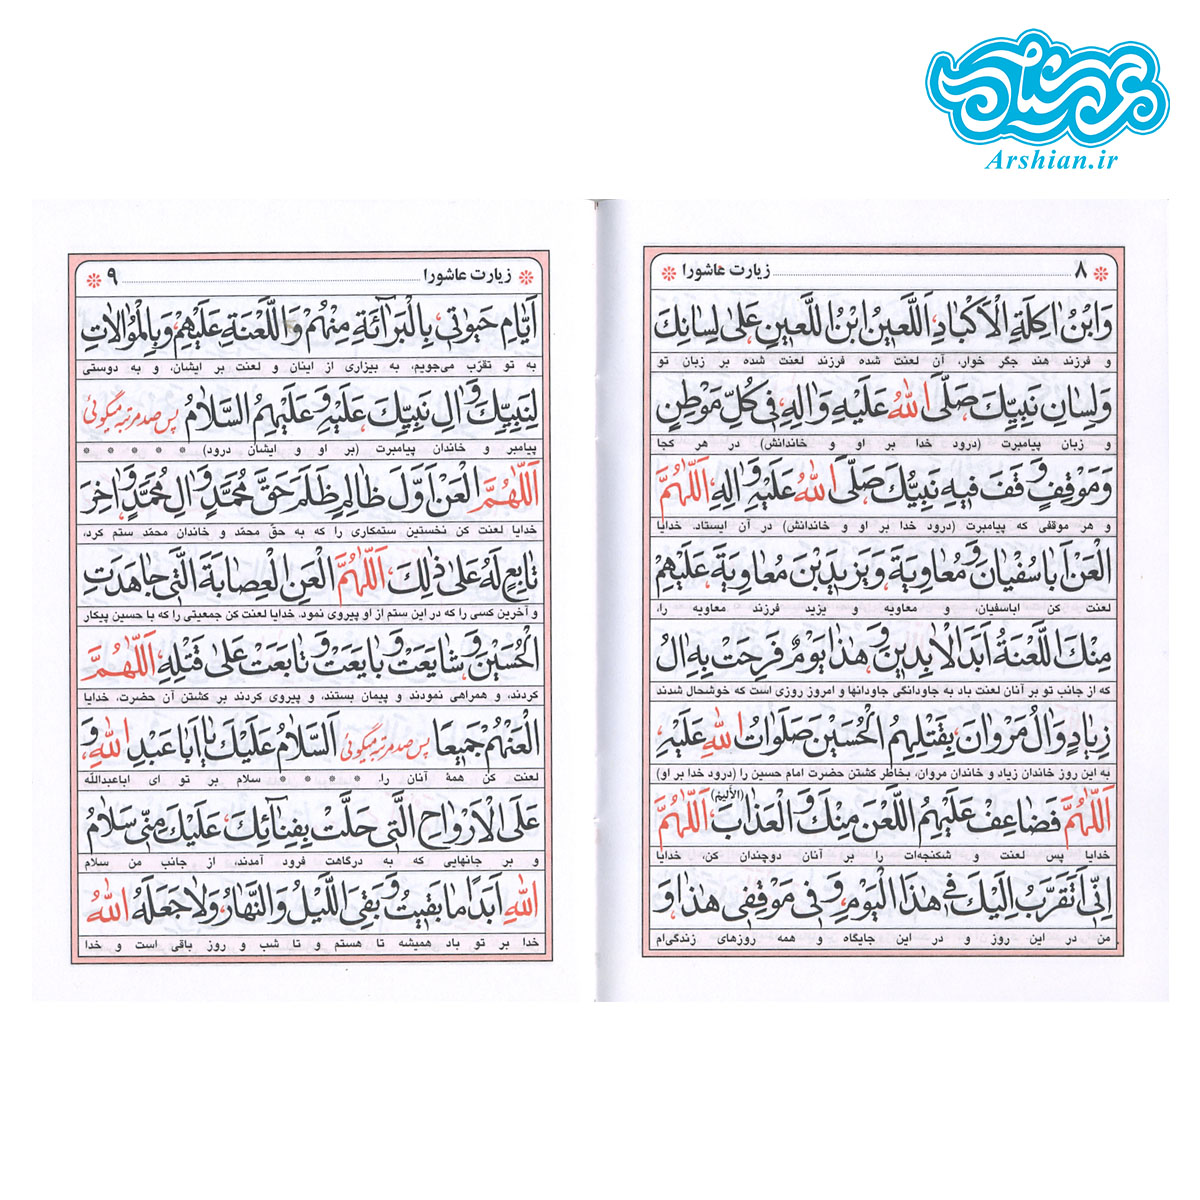 عرشیان
Arshian.ir
۸ زیارت عاشورا
وَابْنُ اكِلَةِ الْاَكْبادِ، اَللَّعينُ ابْنُ اللَّعينِ عَلى لِسانِكَ
و فرزند هند جگر خوار، آن لعنت شده فرزند لعنت شده بر زبان تو
وَلِسانِ نَبِيِّكَ صَلَّى اللهُ عَلَيْهِ وَالِهِ، فى كُلِّ مَوْطِنٍ
و زبان پیامبرت (درود خدا بر او و خاندانش) در هر کجا
وَمَوْقِفٍ وَقَفَ فيهِ نَبِيُّكَ صَلَّى اللهُ عَلَيْهِ وَالِهِ، اَللّهُمَّ
و هر موقفی که پیامبرت (درود خدا بر او و خاندانش) در آن ایستاد. خدایا
الْعَنْ اَباسُفْيانَ وَمُعاوِيَةَ وَيَزيدَ بْنَ مُعاوِيَةَ عَلَيْهِمْ
لعنت کن اباسفیان، و معاویه و یزید فرزند معاویه را،
مِنْكَ اللَّعْنَةُ اَبَدَ الْابِدينَ، وَهذا يَوْمٌ فَرِحَتْ بِهِ الُ
که از جانب تو بر آنان لعنت باد به جاودانگی جاودانها و امروز روزی است که خوشحال شدند
زِيادٍ وَالُ مَرْوانَ، بِقَتْلِهِمُ الْحُسَيْنَ صَلَواتُ اللهِ عَلَيْهِ،
به این روز خاندان زیاد و خاندان مروان، بخاطر کشتن حضرت امام حسین را (درود خدا بر او)
اَللّهُمَّ فَضاعِفْ عَلَيْهِمُ اللَّعْنَ مِنْكَ وَالْعَذابَ (الْأَليمَ)، اَللّهُمَّ
خدایا پس لعنت و شکنجه‌ات را بر آنان دوچندان کن، خدایا
اِنّى اَتَقَرَّبُ اِلَيْكَ فى هذَا الْيَوْمِ، وَفى مَوْقِفى هذا، وَ
من در این روز و در این جایگاه و همه روزهای زندگی‌ام
زیارت عاشورا ۹
اَيّامِ حَيوتى، بِالْبَرآئَةِ مِنْهُمْ وَاللَّعْنَةِ عَلَيْهِمْ، وَبِالْمُوالاتِ
به تو تقرّب می‌جویم، به بیزاری از اینان و لعنت بر ایشان، و به دوستی
لِنَبِيِّكَ وَالِ نَبِيِّكَ عَلَيْهِ وَعَلَيْهِمُ السَّلامُ، پس صد مرتبه میگوئی
پیامبر و خاندان پیامبرت (بر او و ایشان درود) * * * * *
اَللّهُمَّ الْعَنْ اَوَّلَ ظالِمٍ ظَلَمَ حَقَّ مُحَمَّدٍ وَالِ مُحَمَّدٍ، وَاخِرَ
خدایا لعنت کن نخستین ستمکاری را که به حقّ محمّد و خاندان محمّد ستم کرد،
تابِعٍ لَهُ عَلى ذلِكَ، اَللّهُمَّ الْعَنِ الْعِصابَةَ الَّتى جاهَدَتِ
و آخرین کسی را که در این ستم از او پیروی نمود. خدایا لعنت کن جمعیتی را که با حسین پیکار
الْحُسَيْنَ، وَشايَعَتْ وَبايَعَتْ وَتابَعَتْ عَلى قَتْلِهِ، اَللّهُمَّ
کردند، و همراهی نمودند و پیمان بستند، و پیروی کردند بر کشتن آن حضرت، خدایا
الْعَنْهُمْ جَميعًا، پس صد مرتبه میگوئی اَلسَّلامُ عَلَيْكَ يا اَبا عَبْدِ اللهِ، وَ
لعنت کن همهٔ آنان را. * * * * سلام بر تو ای اباعبدالله
عَلَى الْاَرْواحِ الَّتى حَلَّتْ بِفِنائِكَ، عَلَيْكَ مِنّى سَلامُ
و بر جانهایی که به درگاهت فرود آمدند، از جانب من سلام
اللهِ اَبَدًا ما بَقيتُ وَبَقِىَ اللَّيْلُ وَالنَّهارُ، وَلا جَعَلَهُ اللهُ
خدا بر تو باد همیشه تا هستم و تا شب و روز باقی است و خدا